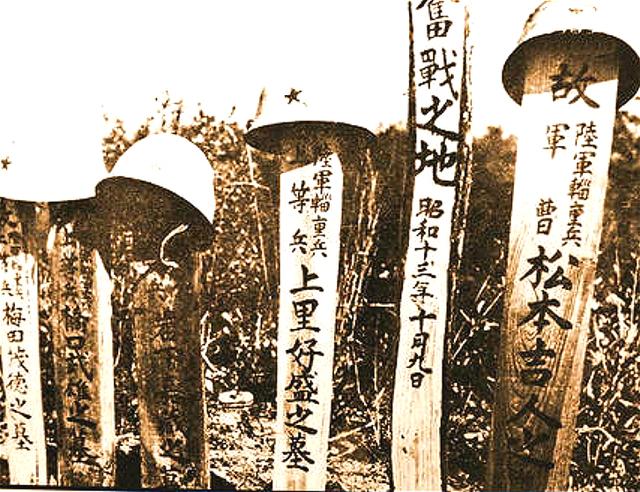 故
陸軍輜重兵
軍曹
松本吉人之
奮戰之地 昭和十三年十月九日
陸軍輜重兵
等兵
上里好盛之墓
之墓
兵 梅田俊德之墓